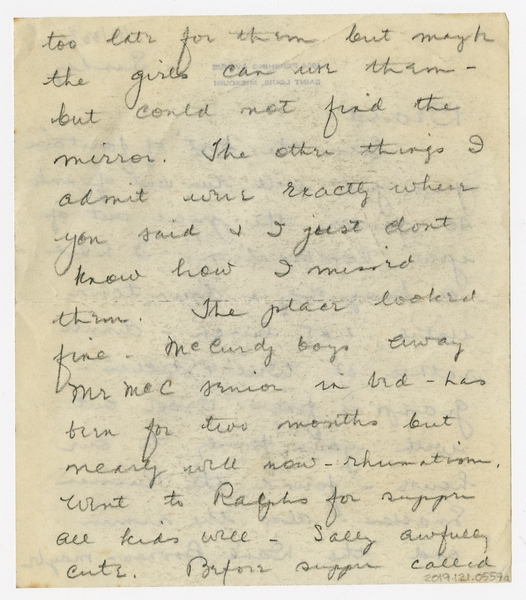 too late for them but maybe
the girls can use them -
but could not find the
mirror. The other things I
admit were exactly where
you said & I just dont
know how I missed
them. The place looked
fine - McCurdy boys away
Mr McC senior in bed - has
been for two months but
nearly well now - rheumatism.
Went to Ralphs for supper
all kids well - Sally awfully
cute. Before supper called
2019.121.0557a